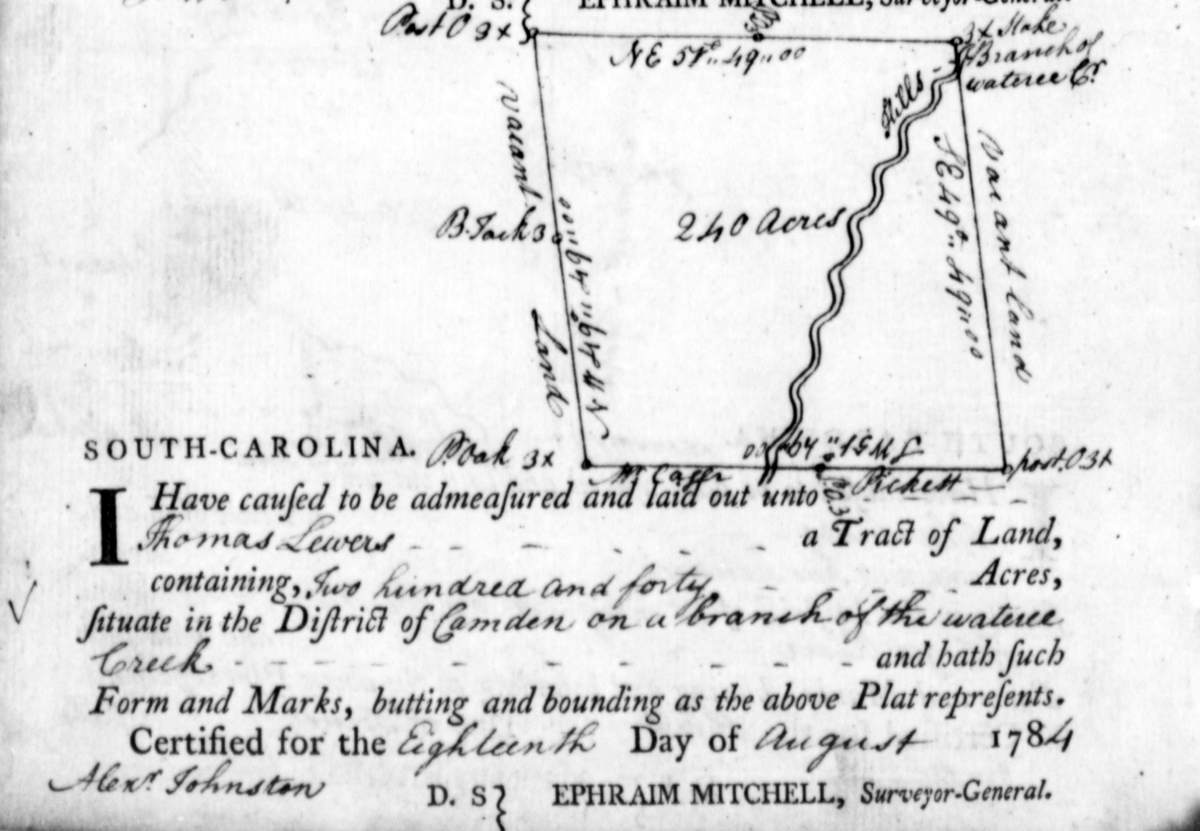 D. S. EPHRAIM MITCHELL, Surveyor-General.
Post O 3x
3x Stake
NE 51.. 49.. 00
Branch of
wateree Cr
vacant
Land
B. Jack 3
240 Acres
SE 49.. 49.. 00
vacant land
SOUTH-CAROLINA.
P. Oak 3x
post. O 3x
Pickett
I Have cauſed to be admeaſured and laid out unto
Thomas Lewers a Tract of Land,
containing, Two hundred and forty Acres,
ſituate in the Diſtrict of Camden on a branch of the wateree
Creek and hath ſuch
Form and Marks, butting and bounding as the above Plat repreſents.
Certified for the Eighteenth Day of August 1784
Alexr. Johnston D. S EPHRAIM MITCHELL, Surveyor-General.